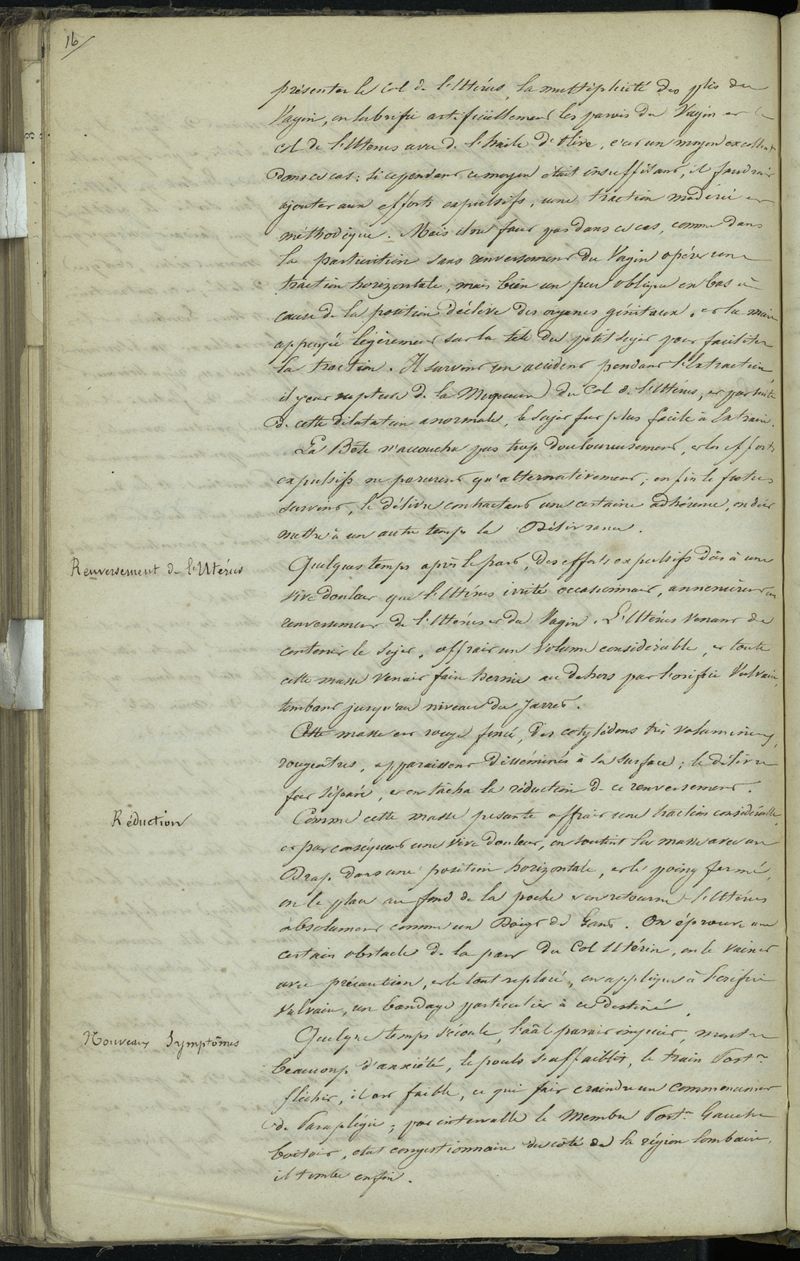 16/
présenter le col de l'Utérus, la multiplicité des plis du
Vagin, on lubrifie artificiellement les parois du Vagin et le
col de l'Utérus avec de l'huile d'Olive, c'est un moyen excellent
dans ce cas; si cependant ce moyen était insuffisant, il faudrait
ajouter aux efforts expulsifs, une traction modérée et
méthodique. Mais il ne faut pas dans ce cas, comme dans
la parturition sans renversement du Vagin opérer une
traction horizontale, mais bien un peu oblique en bas à
cause de la position déclive des organes génitaux, et la main
appuyée légèrement sur la tête du petit sujet pour faciliter
la traction. Il survint un accident pendant l'extraction
il y eut rupture de la Muqueuse du Col de l'Utérus, et par suite
de cette dilatation anormale, le sujet fut plus facile à extraire.
La Bête n'accoucha pas trop douloureusement, et les efforts
expulsifs ne parurent qu'alternativement; enfin le fœtus
survint, le délivre contractant une certaine adhérence, on dût
mettre à un autre temps la Délivrance.
Renversement de l'Utérus
Quelques temps après le part, des efforts expulsifs dûs à une
vive douleur que l'Utérus irrité occasionnait, amenèrent un
renversement de l'Utérus et du Vagin. L'Utérus venant de
contenir le sujet, offrait un volume considérable, et toute
cette masse venait faire hernie au dehors par l'orifice Vulvaire,
tombant jusqu'au niveau des Jarrets.
Cette masse est rouge foncé, des cotylédons très volumineux,
rougeâtres, apparaissent disséminés à sa surface; le délivre
fut séparé, et on tâcha la réduction de ce renversement.
Réduction
Comme cette masse pesante offrait une traction considérable,
et par conséquent une vive douleur, on soutint la masse avec un
Drap dans une position horizontale, et le poing fermé,
on le place au fond de la poche et on retourne l'Utérus
absolument comme un Doigt de Gant. On éprouve un
certain obstacle de la part du Col Utérin, on le vainc
avec précaution, et le tout replacé, on applique à l'orifice
Vulvaire, un bandage particulier à ce Destiné.
Nouveaux Symptômes
Quelque temps s'écoule, l'œil parait injecté, montre
beaucoup d'anxiété, le pouls s'affaiblit, le train Postr
fléchit, il est faible, ce qui fait craindre un commencement
de Paraplégie; par intervalle le Membre Postr Gauche
boitait, état congestionnaire du côté de la région lombaire,
il tombe enfin.